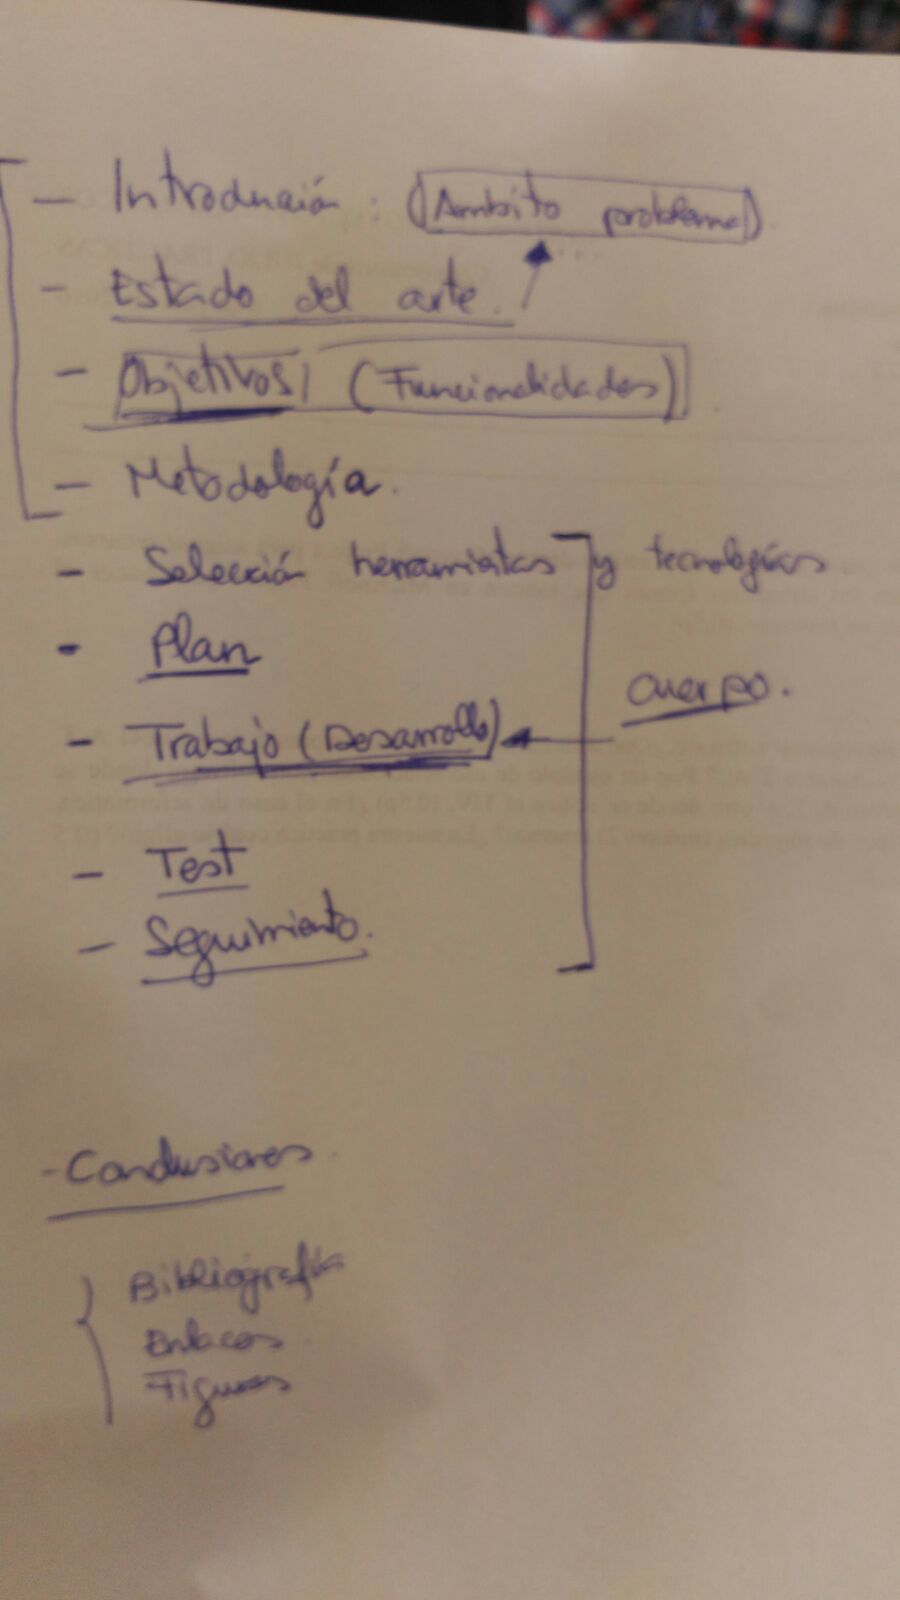 - Introducción : (Ámbito problema).
- Estado del arte.
- Objetivos (Funcionalidades)
- Metodología.
- Selección herramientas y tecnologías
- Plan
cuerpo.
- Trabajo (Desarrollo)
- Test
- Seguimiento.
- Conclusiones.
Bibliografía
Enlaces
Figuras